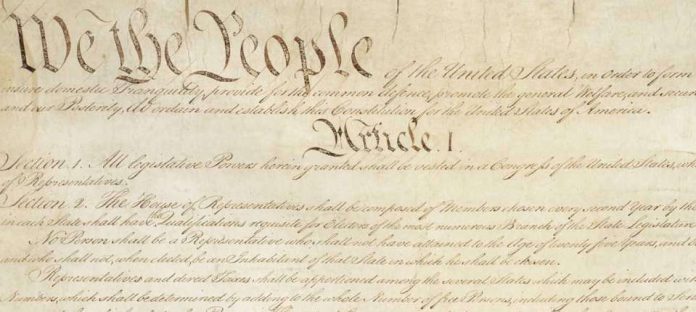 We the People of the United States, in Order to form
insure domestic Tranquility, provide for the common defence, promote the general Welfare, and secur
and our Posterity, do ordain and establish this Constitution for the United States of America.
Article. I.
Section. 1. All legislative Powers herein granted shall be vested in a Congress of the United States, wh
of Representatives.
Section. 2. The House of Representatives shall be composed of Members chosen every second Year by the
in each State shall have the Qualifications requisite for Electors of the most numerous Branch of the State Legislature
No Person shall be a Representative who shall not have attained to the Age of twenty five Years, and
and who shall not, when elected, be an Inhabitant of that State in which he shall be chosen.
Representatives and direct Taxes shall be apportioned among the several States which may be included with
Numbers, which shall be determined by adding to the whole Number of free Persons, including those bound to Serv